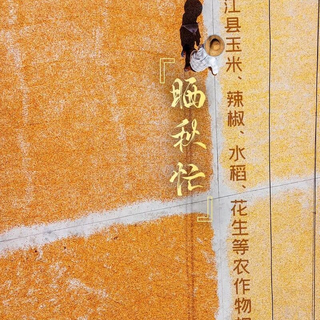 江县玉米、辣椒、水稻、花生等农作物
『晒秋忙』